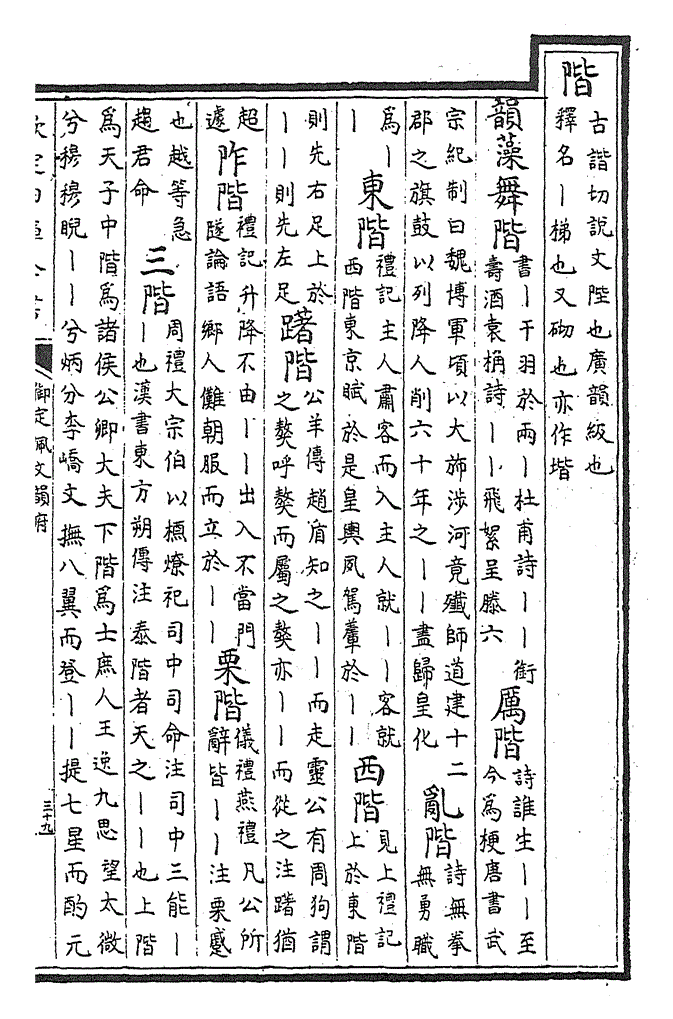 階
古諧切說文陛也廣韻級也
釋名丨梯也又砌也亦作堦
韻藻舞階
書丨干羽於兩丨杜甫詩丨丨銜
壽酒袁桷詩丨丨飛絮呈滕六
厲階
詩誰生丨丨至
今為梗唐書武
宗紀制曰魏博軍頃以大旆涉河竟殲師道建十二
郡之旗鼓以列降人削六十年之丨丨盡歸皇化
亂階
詩無拳
無勇職
為丨
丨
東階
禮記主人肅客而入主人就丨丨客就
西階東京賦於是皇輿夙駕輦於丨丨
西階
見上禮記
上於東階
則先右足上於
丨丨則先左足
躇階
公羊傳趙盾知之丨丨而走靈公有周狗謂
之獒呼獒而屬之獒亦丨丨而從之注躇猶
超
遽
阼階
禮記升降不由丨丨出入不當門
隧論語鄉人儺朝服而立於丨丨
栗階
儀禮燕禮凡公所
辭皆丨丨注栗蹙
也越等急
趨君命
三階
周禮大宗伯以槱燎祀司中司命注司中三能丨
丨也漢書東方朔傳注泰階者天之丨丨也上階
為天子中階為諸侯公卿大夫下階為士庶人王逸九思望太微
兮穆穆睨丨丨兮炳分李嶠文撫八翼而登丨丨提七星而酌元
欽定四庫全書
御定佩文韻府
三十九